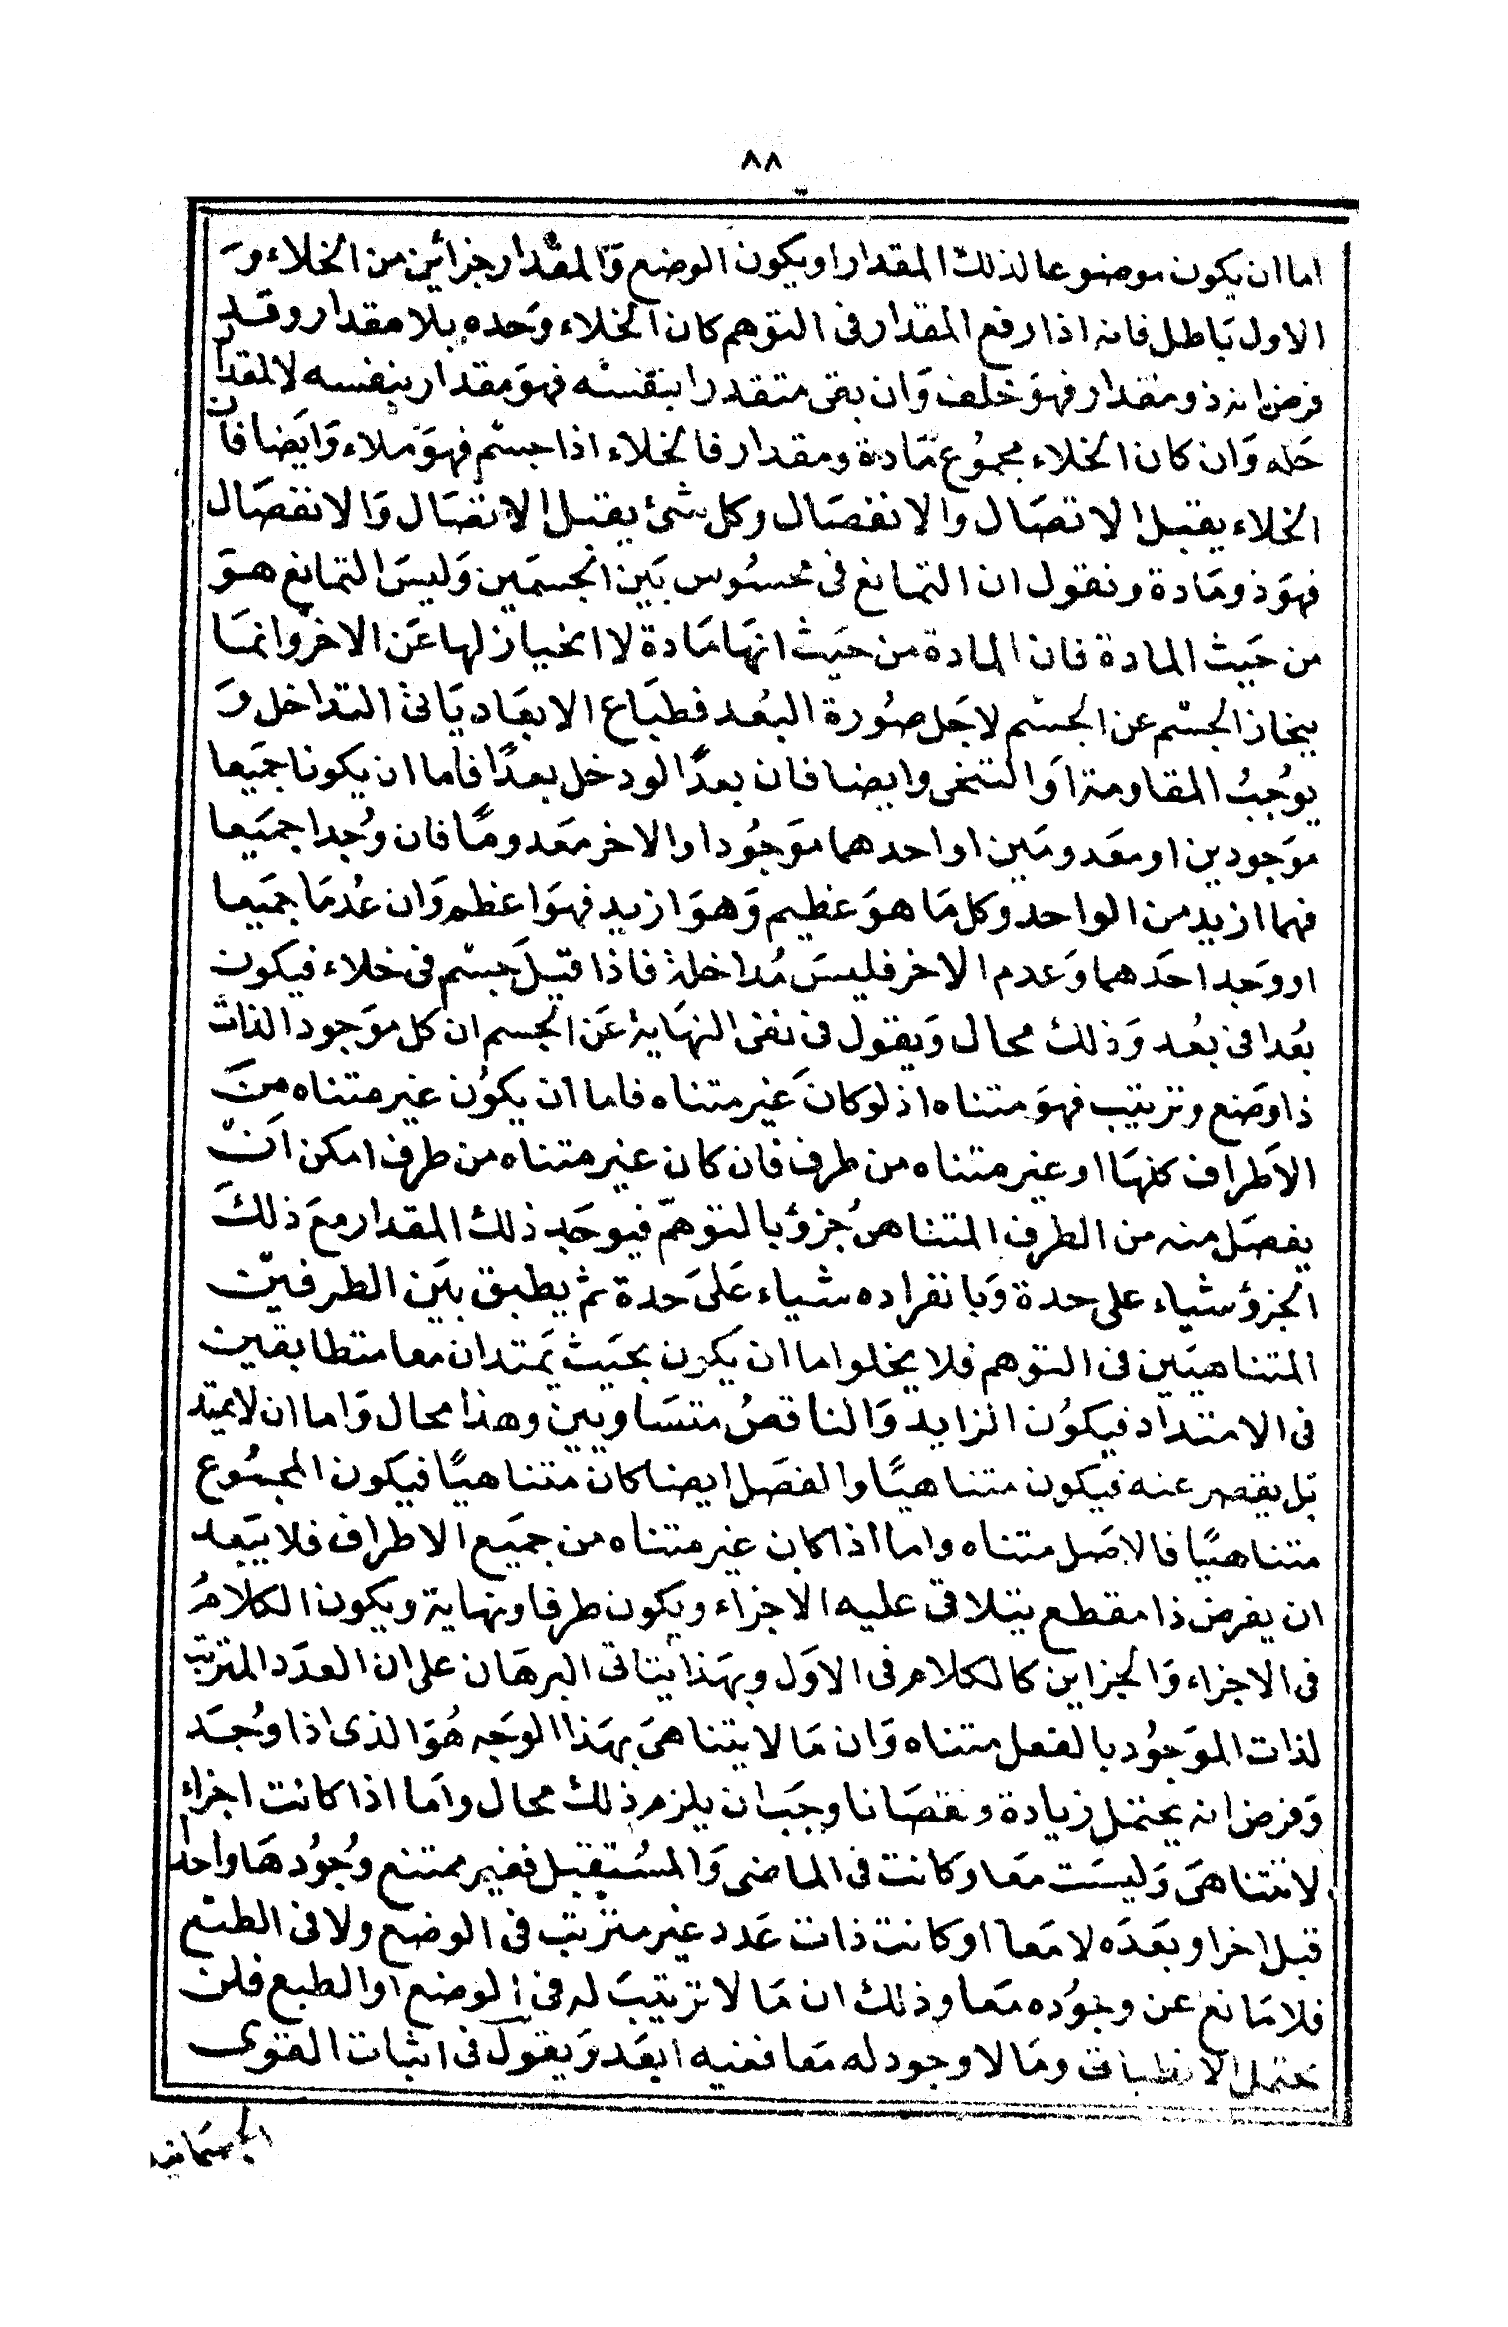 ٨٨
اما ان يكون موضوعا لذلك المقدار او يكون الوضع وَالمقدار جزائين من الخلاء وَ
الاول بَاطل فانه اذا رفع المقدار فى التوهم كان الخلاء وَحده بلا مقدار وقد
فرض انه ذو مقدار فهوَ خلف وَان بقى متقدرا بنفسه فهوَ مقدار بنفسه لا لمقدار
حَله وَان كان الخلاء مجمُوع مَادة ومقدار فالخلاء اذا جسْم فهوَ ملاء وَايَضا فان
الخلاء يقبل الاتصَال والانفصَال وكل شئ يقبل الاتصَال وَالانفصَال
فهوَ ذو مَادة ونقول ان التمانع فى محسُوس بَين الجسمَين وَليسَ التمانع هوَ
من حَيث المادة فان المادة من حيَث انهَا مَادة لا انحياز لها عَن الاخر وانمَا
ينحاز الجسْم عن الجسْم لاجَل صُورة البعُد فطبَاع الابعَاد يَابى التداخل وَ
يوُجبُ المقاومة اوَ التنحى وايضا فان بعدًا لو دخل بعدًا فاما ان يكونا جمَيعا
موَجودين او معَدومَين او احدهما موَجوُدا والاخر معَدومًا فان وُجدا جميَعا
فهما ازيد من الواحد وكل مَا هوَ عظيم وَهوَ ازيد فهوَ اعظم وَان عُدمَا جمَيعا
او وَجد احدَهما وَعدم الاخر فليسَ مُداخلة فاذا قيَل جسْم فى خلاء فيكون
بعُدا فى بعُد وَذلك محال وَيقول فى نفى النهَاية عَن الجسم ان كل موَجود الذات
ذا وضَع وترتيَب فهوَ متناه اذ لو كانَ غير متناه فاما ان يكوُن غير متناه منَ
الاَطراف كلهَا او غير متناه من طرف فان كان غير متناه من طرف امكن اَنْ
يفصَل منه من الطرف المتناهىُ جزؤ بالتوهمّ فيوجَد ذلك المقدار معَ ذلكَ
الجزؤ شيْاء على حدة وَبانفراده شيْاء عَلىَ حدة ثم يطبق بيَن الطرفين
المتناهيَين فى التوهم فلا يخلوا اما ان يكَون بحيَث يمَتدان معا متطابقين
فى الامتداد فيكوُن الزايد وَالناقصُ متسَاويين وهذا محال وَاما ان لا يمتد
بَل يقصر عنه فيكون متناهيًا والفصَل ايضا كان متناهيًا فيكون المجمُوع
متناهيًا فالاصَل متناه واما اذا كان غير متناه من جمَيع الاطراف فلا يبَعد
ان يفرض ذا مقطع يتلاقى عليه الاجزاء ويكون طرفا ونهاية ويكون الكلامُ
فى الاجزاء وَالجزاين كالكلام فى الاوَل وبهَذا يتاتى البرهَان على ان العدَد المترتب
لذات الموَجوُد بالفعل متناه وَان مَا لا يتناهىَ بهَذا الوجَه هُوَ الذى اذا وجُدَ
وَفرض انه يحتمَل زيادة ونقصَانا وجبَ ان يلزم ذلك محال وامَا اذا كانت اجزاء
لا تتناهىَ وَليسَت معَا وَكانت فى الماضى وَالمسُتقبل فغير ممتنع وُجوُدهَا واحدا
قبل اخر او بعَدَه لا معَا او كانت ذات عَدد غير مترتب فى الوضع ولا فى الطبْع
فلا مَانع عن وجوُده معَا وذلك ان مَا لا ترتيبَ له فى الوضع او الطبع فلن
يحتمل الانطباق ومَا لا وجود له معَا ففيه ابعَد وَيقول فى اثبات القوى
الجسمَانية